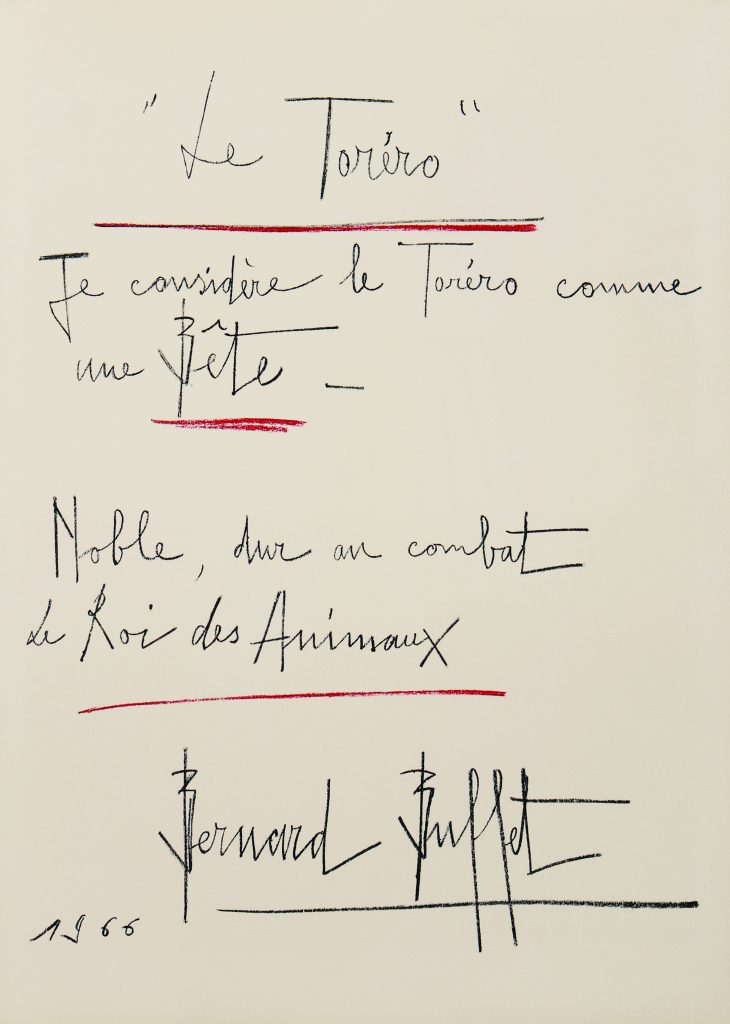 "Le Toréro"
Je considère le Toréro comme
une Bête _
Noble, dur au combat
Le Roi des Animaux
Bernard Buffet
1966